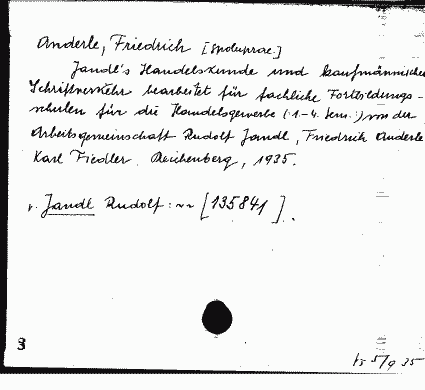 Anderle, Friedrich [spoluprac.]
Jandl's Handelskunde und kaufmännischer
Schriftverkehr bearbeitet für fachliche Fortbildungs-
schulen für die Handelsgewerbe (:1-4. Sem.:) von der
Arbeitsgemeinschaft Rudolf Jandl, Friedrich Anderle
Karl Fiedler. Reichenberg, 1935.
v. Jandl Rudolf: ~~ [135841].
3
5/9 35